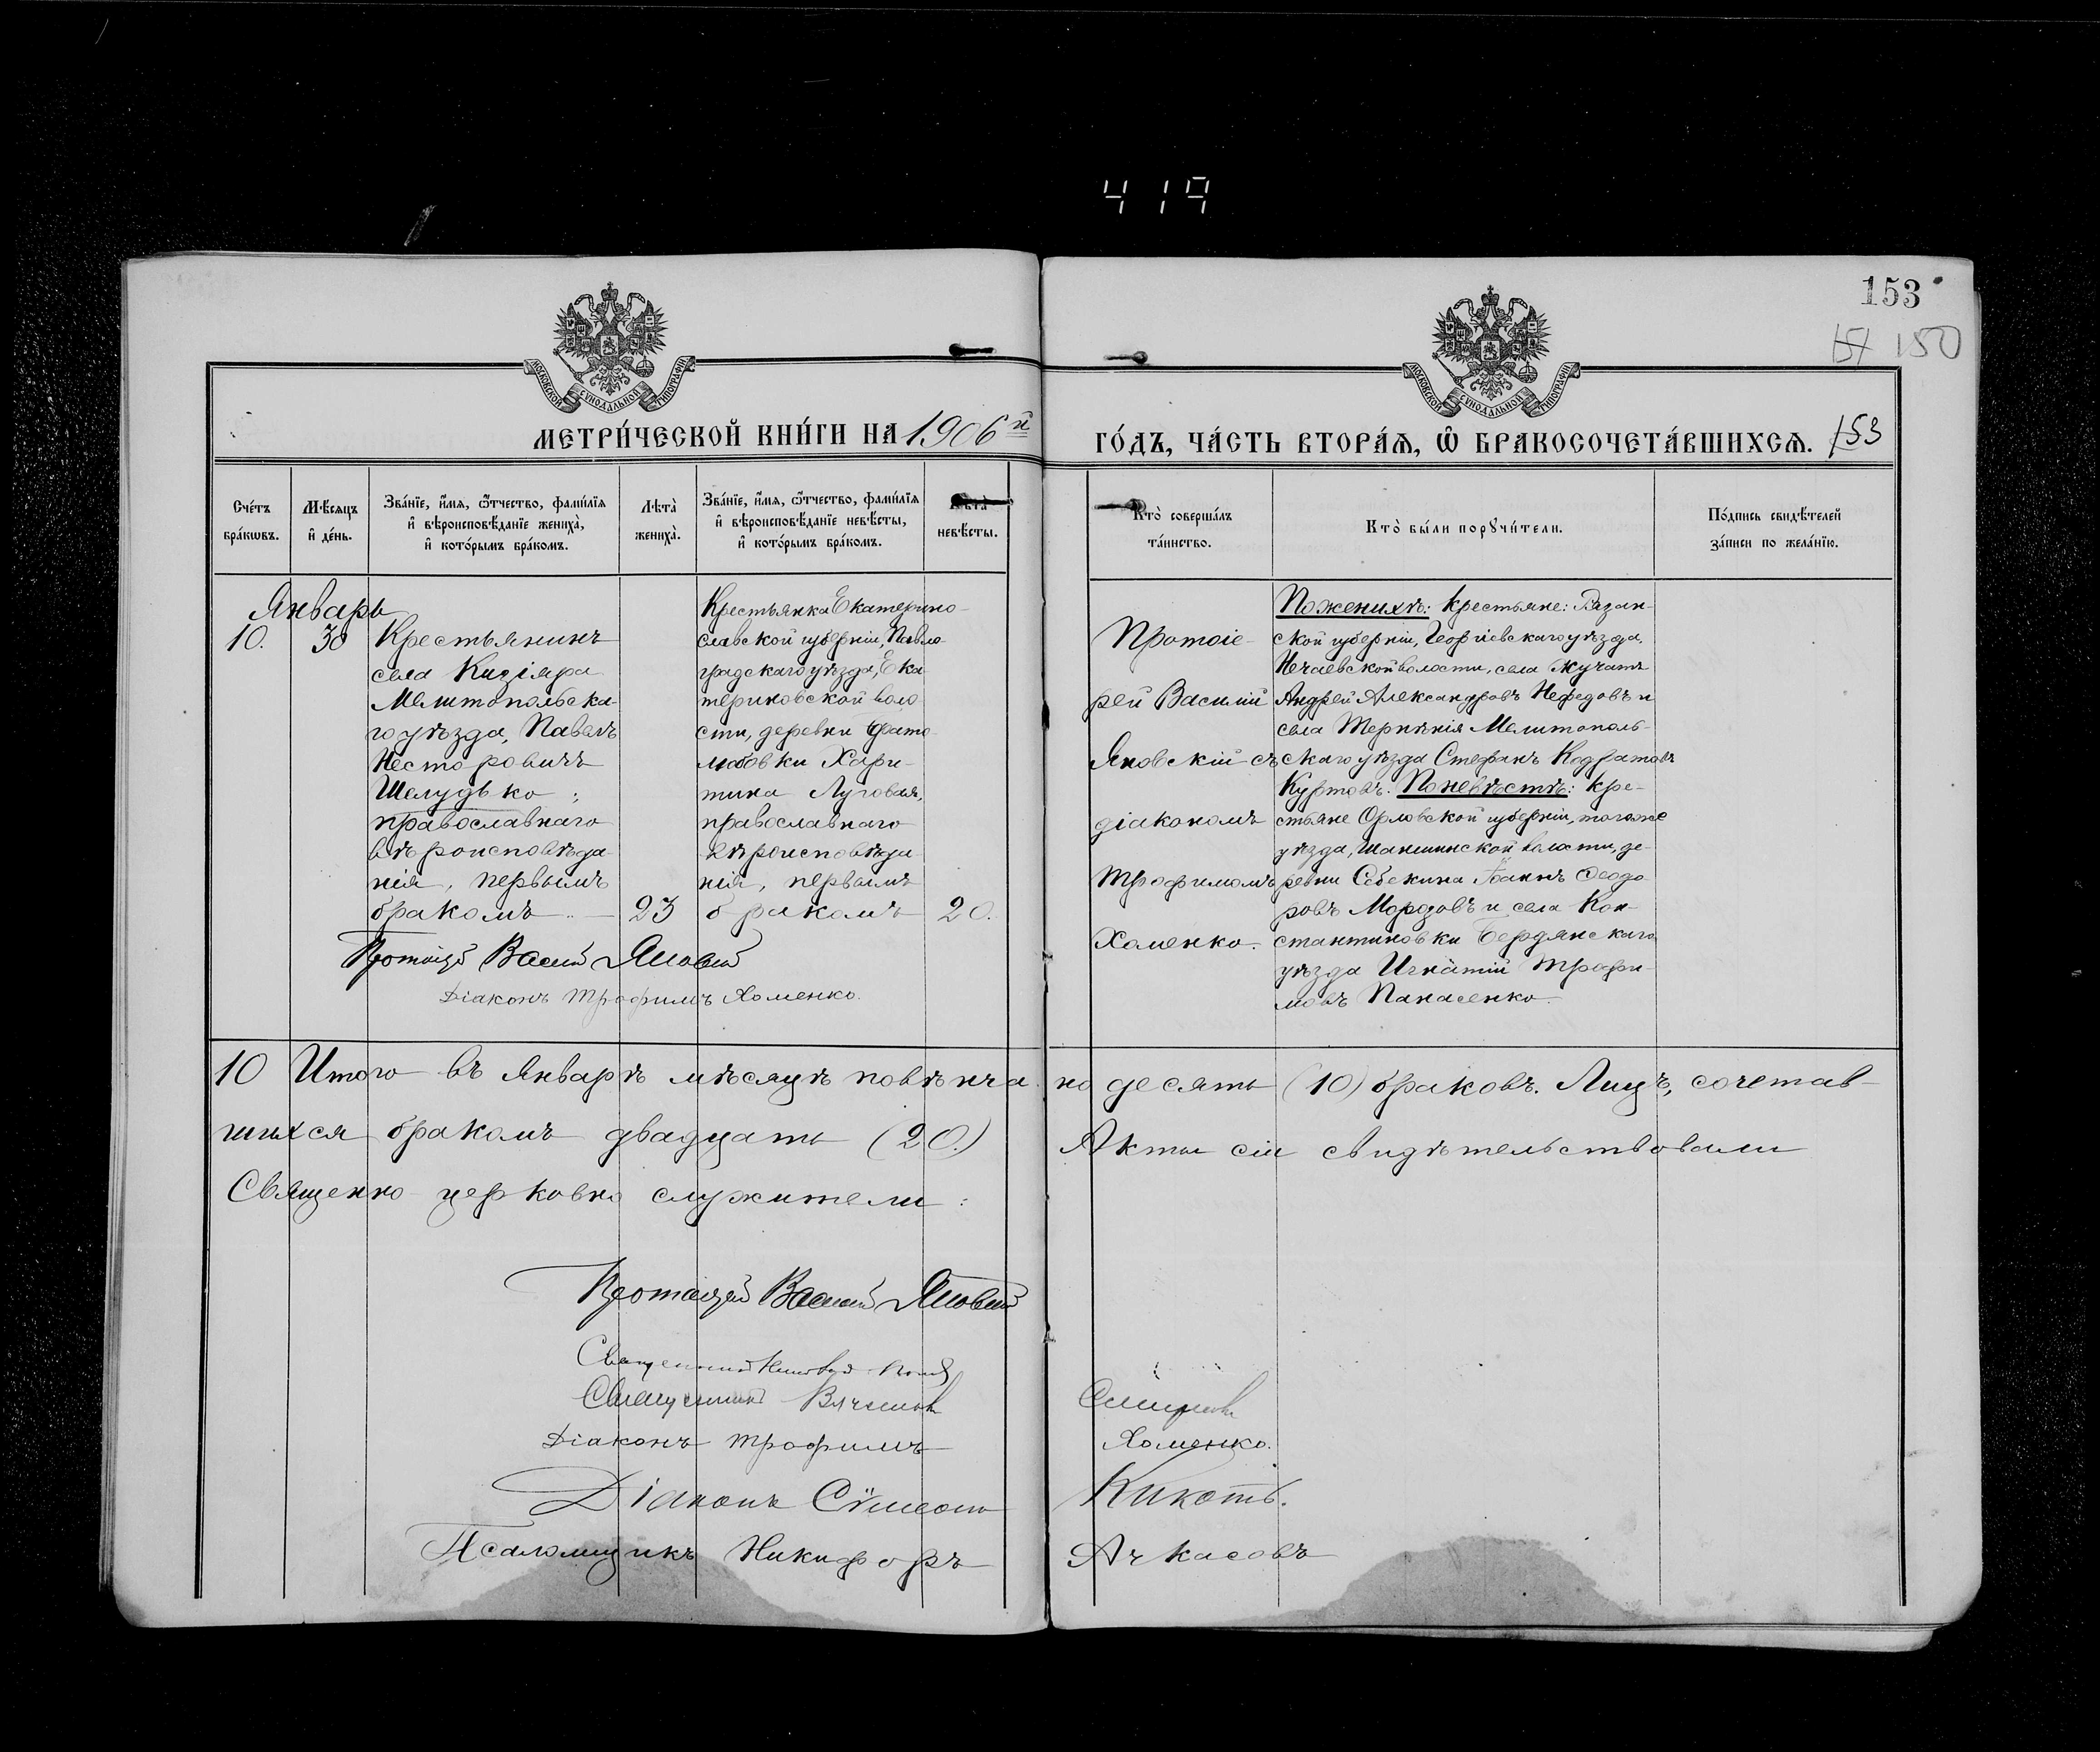 419
153
151 150
МОСКОВСКОЙ СѴНОДАЛЬНОЙ ТИПОГРАФІИ
МОСКОВСКОЙ СѴНОДАЛЬНОЙ ТИПОГРАФІИ
МЕТРИ́ЧЕСКОЙ КНИ́ГИ НА 1906й
ГО́ДЪ, ЧА́СТЬ ВТОРА́Ѧ, Ѡ҆ БРАКОСОЧЕТА́ВШИХСѦ. 153
Сче́тъ
бра́кωвъ.
Мѣ́сѧцъ
и҆ де́нь.
Зва́нїе, и҆́мѧ, ѻ҆́тчество, фами́лїѧ
и҆ вѣроисповѣ́данїе жениха̀,
и҆ кото́рымъ бра́комъ.
Лѣта̀
жениха̀.
Зва́нїе, и҆́мѧ, ѻ҆́тчество, фами́лїѧ
и҆ вѣроисповѣ́данїе невѣ́сты,
и҆ кото́рымъ бра́комъ.
Лѣта̀
невѣ́сты.
Кто̀ соверша́лъ
та́инство.
Кто̀ бы́ли порꙋчи́тели.
По́дпись свидѣ́телей
за́писи по жела́нїю.
Январь
10.
30
Крестьянинъ
села Кизіяра
Мелитопольска-
го уѣзда, Павелъ
Несторовичъ
Шелудько;
православнаго
вѣроисповѣда-
нія, первымъ
бракомъ
23
Крестьянка Екатерино-
славской губерніи, Павло-
градскаго уѣзда, Ека-
териновской воло
сти, деревни Брато-
любовки Хари-
тина Луговая,
православнаго
вѣроисповѣда-
нія, первымъ
бракомъ
20.
Протоіерей Василій Яновскій
Діаконъ Трофимъ Хоменко.
Протоіе-
рей Василій
Яновскій съ
діакономъ
Трофимомъ
Хоменко.
По женихѣ: крестьяне: Рязан-
ской губерніи, Георгіевскаго уѣзда,
Нечаевской волости, села Жучатъ
Андрей Александровъ Нефедовъ и
села Терпѣнія Мелитополь-
скаго уѣзда Стефанъ Кодратовъ
Куртовъ. По невѣстѣ: кре-
стьяне Орловской губерніи, того же
уѣзда, волости, де-
ревни Себекина Іоаннъ Ѳеодо-
ровъ Морозовъ и села Кон-
стантиновки Бердянскаго
уѣзда Игнатій Трофи-
мовъ Панасенко.
10 Итого въ Январѣ мѣсяцѣ повѣнча но десять (10) браковъ. Лицъ, сочетав-
шихся бракомъ двадцать (20.) Акты сіи свидѣтельствовали
Священно церковно служители:
Протоіерей Василій Яновскій
Священникъ
Священникъ Смирновъ
Діаконъ Трофимъ Хоменко.
Діаконъ Сѵмеонъ Кикоть.
Псаломщикъ Никифоръ Ачкасовъ